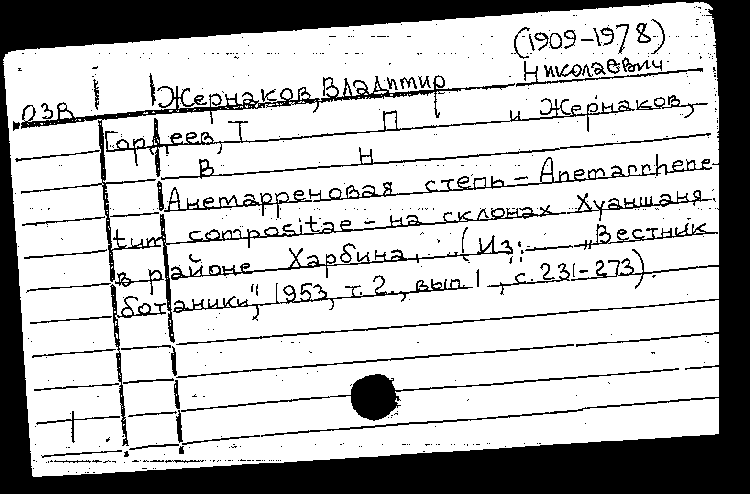 (1909-1978)
Жернаков, Владимир Николаевич
ОЗВ
Гордеев, Т П и Жернаков,
В Н
Анемарреновая степь - Anemarrhene
tum compositae - на склонах Хуаншаня
в районе Харбина, (Из: „Вестник
ботаники", 1953, т. 2., вып. 1, с. 231-273).
1